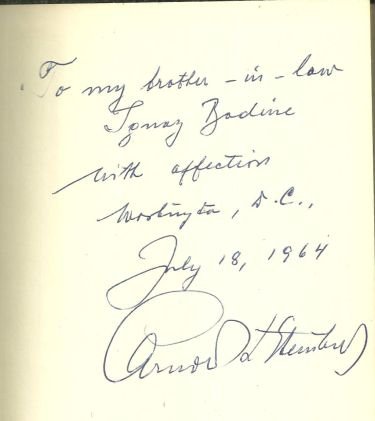 To my brother-in-law
Ignaz Bodine
with affection
Washington, D.C.,
July 18, 1964
Arnold Steinberg